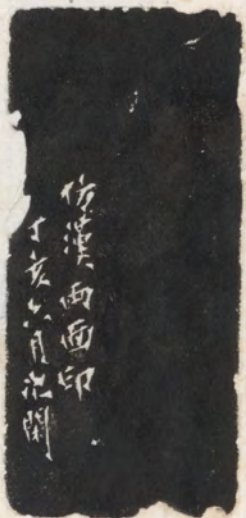 仿漢兩面印
丁亥六月沁閑